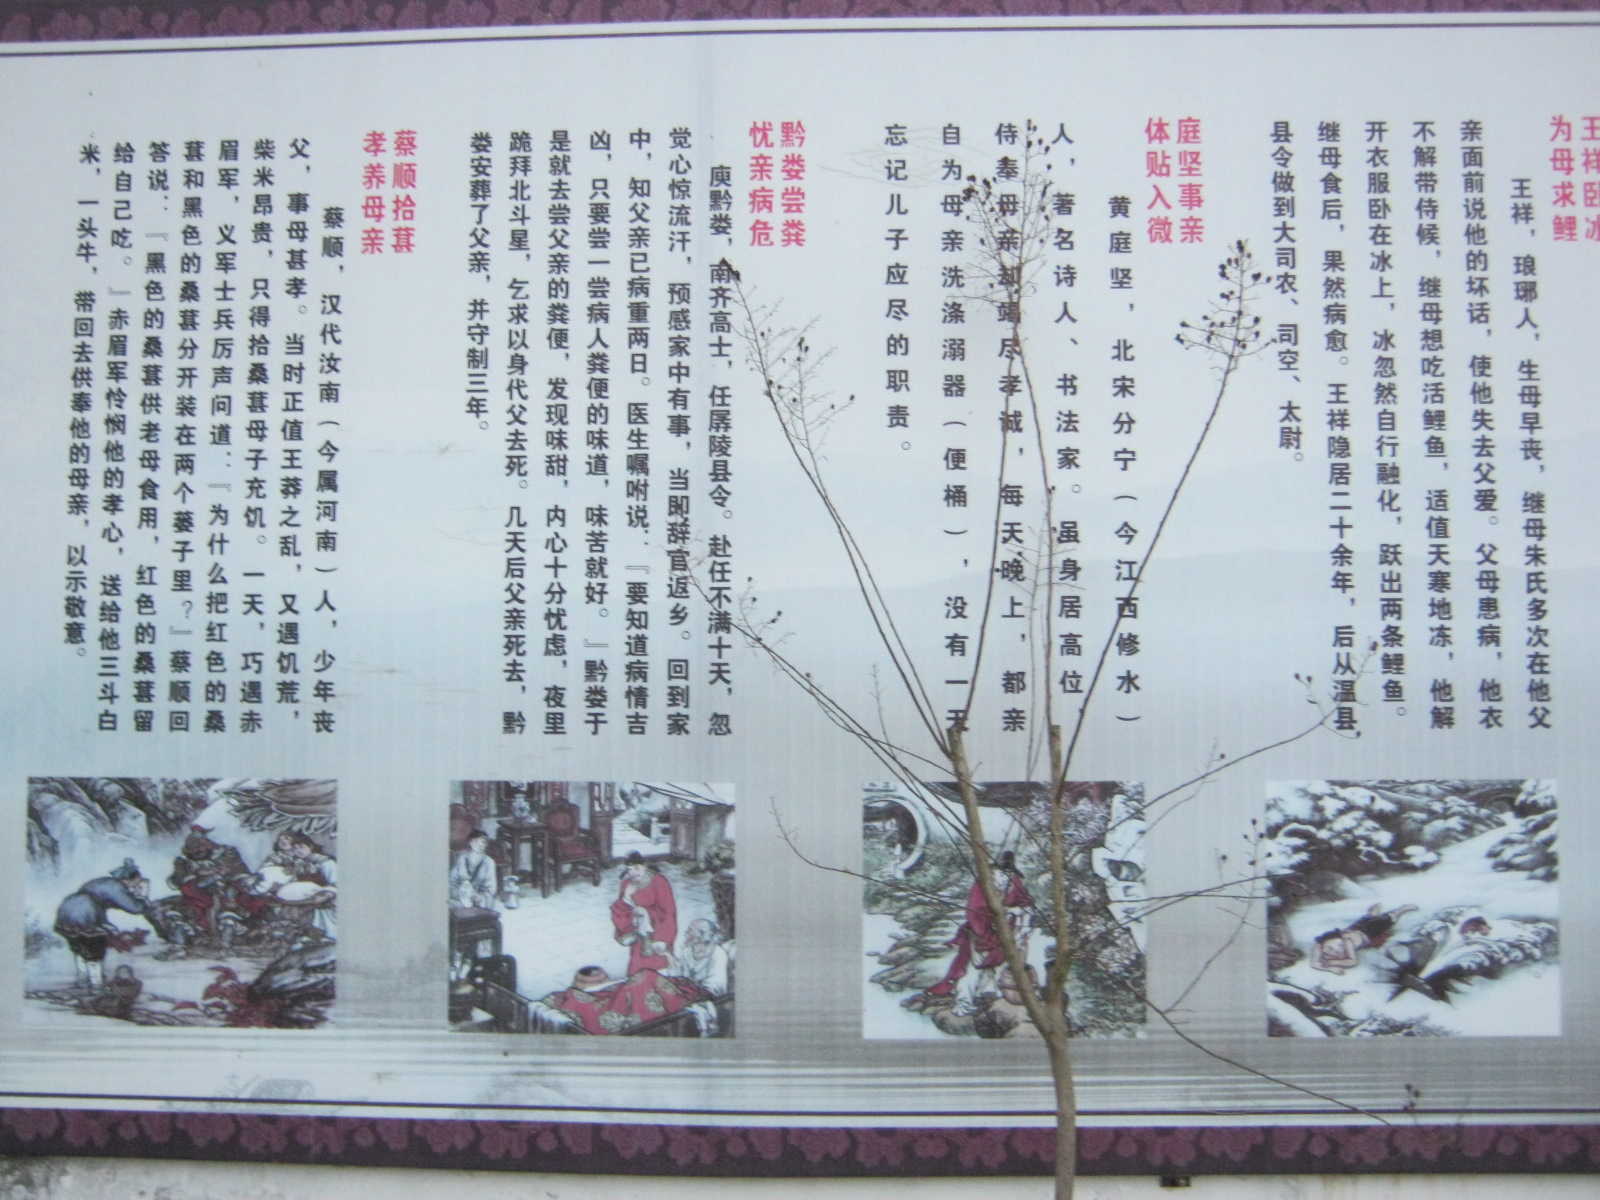 王祥卧冰
为母求鲤
王祥，琅琊人，生母早丧，继母朱氏多次在他父
亲面前说他的坏话，使他失去父爱。父母患病，他衣
不解带侍候，继母想吃活鲤鱼，适值天寒地冻，他解
开衣服卧在冰上，冰忽然自行融化，跃出两条鲤鱼。
继母食后，果然病愈。王祥隐居二十余年，后从温县
县令做到大司农、司空、太尉。
庭坚事亲
体贴入微
黄庭坚，北宋分宁（今江西修水）
人，著名诗人、书法家。虽身居高位
侍奉母亲却竭尽孝诚，每天晚上，都亲
自为母亲洗涤溺器（便桶），没有一天
忘记儿子应尽的职责。
黔娄尝粪
忧亲病危
庾黔娄，南齐高士，任孱陵县令。赴任不满十天，忽
觉心惊流汗，预感家中有事，当即辞官返乡。回到家
中，知父亲已病重两日。医生嘱咐说：『要知道病情吉
凶，只要尝一尝病人粪便的味道，味苦就好。』黔娄于
是就去尝父亲的粪便，发现味甜，内心十分忧虑，夜里
跪拜北斗星，乞求以身代父去死。几天后父亲死去，黔
娄安葬了父亲，并守制三年。
蔡顺拾葚
孝养母亲
蔡顺，汉代汝南（今属河南）人，少年丧
父，事母甚孝。当时正值王莽之乱，又遇饥荒，
柴米昂贵，只得拾桑葚母子充饥。一天，巧遇赤
眉军，义军士兵厉声问道：『为什么把红色的桑
葚和黑色的桑葚分开装在两个篓子里？』蔡顺回
答说：『黑色的桑葚供老母食用，红色的桑葚留
给自己吃。』赤眉军怜悯他的孝心，送给他三斗白
米，一头牛，带回去供奉他的母亲，以示敬意。